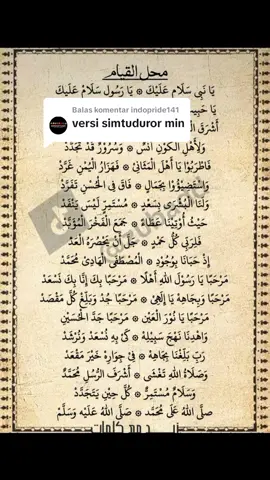 محل القيام
يَا نَبِي سَلَام عَلَيْكَ ۞ يَا رَسُول سَلَامْ عَلَيكَ
يَا حَبِيبْ
Balas komentar indopride141
versi simtuduror min
أَشْرَقَ
وَلِأَهْلِ الْكَوْنِ أُنْسٌ ۞ وَسُرُورٌ قَدْ تَجَدَّدْ
فَاطْرَبُوْا يَا أَهْلَ الْمَثَانِيْ ۞ فَهَزَارُ الْيُمْنِ غَرَّدْ
وَاسْتَضِيْئُوْا بِجَمَالٍ ۞ فَاقَ فِي الْحُسْنِ تَفَرَّدْ
وَلَنَا الْبُشْرَى بِسَعْدٍ ۞ مُسْتَمِرٍّ لَيْسَ يَنْفَدْ
حَيْثُ أُوْتِيْنَا عَطَاءً ۞ جَمَعَ الْفَخْرَ الْمُؤَبَّدْ
فَلِرَبِّيْ كُلُّ حَمْدٍ ۞ جَلَّ أَنْ يَحْصُرَهُ الْعَدّ
إِذْ حَبَانَا بِوُجُوْدِ ۞ الْمُصْطَفَى الْهَادِيْ مُحَمَّدْ
مَرْحَبًا يَا رَسُوْلَ اللهِ أَهْلًا ۞ مَرْحَبًا بِكَ إِنَّا بِكَ نُسْعَدْ
مَرْحَبًا وَبِجَاهِهْ يَا إِلَهِيْ ۞ مَرْحَبًا جُدْ وَبَلِّغْ كُلَّ مَقْصَدْ
مَرْحَبًا يَا نُوْرَ الْعَيْنِ ۞ مَرْحَبًا جَدَّ الْحُسَيْنِ
وَاهْدِنَا نَهْجَ سَبِيْلِهْ ۞ كَيْ بِهْ نُسْعَدْ وَنُرْشَدْ
رَبِّ بَلِّغْنَا بِجَاهِهْ ۞ فِيْ جِوَارِهْ خَيْرَ مَقْعَدْ
وَصَلَاةُ اللهِ تَغْشَى ۞ أَشْرَفَ الرُّسْلِ مُحَمَّدْ
وَسَلَامٌ مُسْتَمِرٌّ ۞ كُلَّ حِيْنٍ يَتَجَدَّدْ
صَلَّى اللهُ عَلَى مُحَمَّدْ ۞ صَلَّى اللهُ عَلَيْهِ وَسَلَّمْ